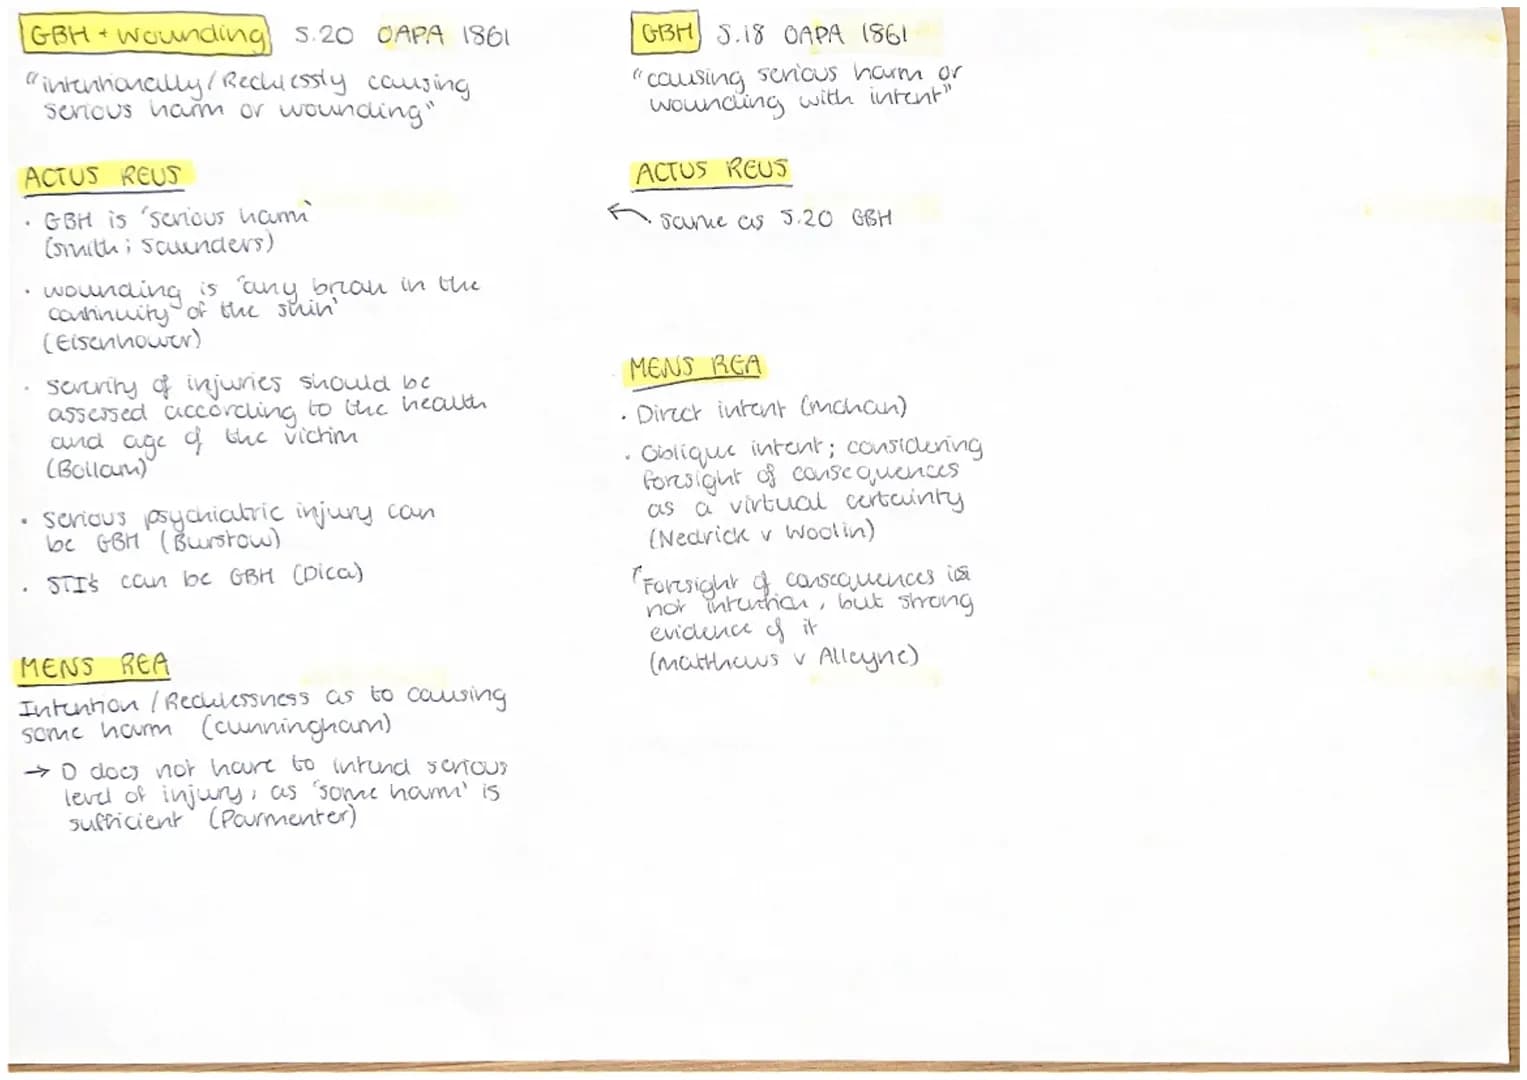 GBH + wounding S.20 OAPA 1861
"intentionally/Recklessly causing
serious harm or wounding"
ACTUS REUS
· GBH is 'serious harm'
(Smith; Saunders)
· wounding is 'any break in the
continuity of the skin'
(Eisenhower)
· severity of injuries should be
assessed according to the health
and age of the victim
(Bollam)
· serious psychiatric injury can
be GBH (Burstow)
· STI's can be GBH (Dica)
MENS REA
Intention / Recklessness as to causing
some harm (Cunningham)
→ D does not have to intend serious
level of injury, as 'some harm' is
sufficient (Parmenter)
GBH S.18 OAPA 1861
"causing serious harm or
wounding with intent"
ACTUS REUS
· same as S.20 GBH
MENS REA
· Direct intent (mohan)
· Oblique intent; considering
foresight of consequences
as a virtual certainty
(Nedrick v Woolin)
Foresight of consequences is
not intention, but strong
evidence of it
(Matthews v Alleyne)